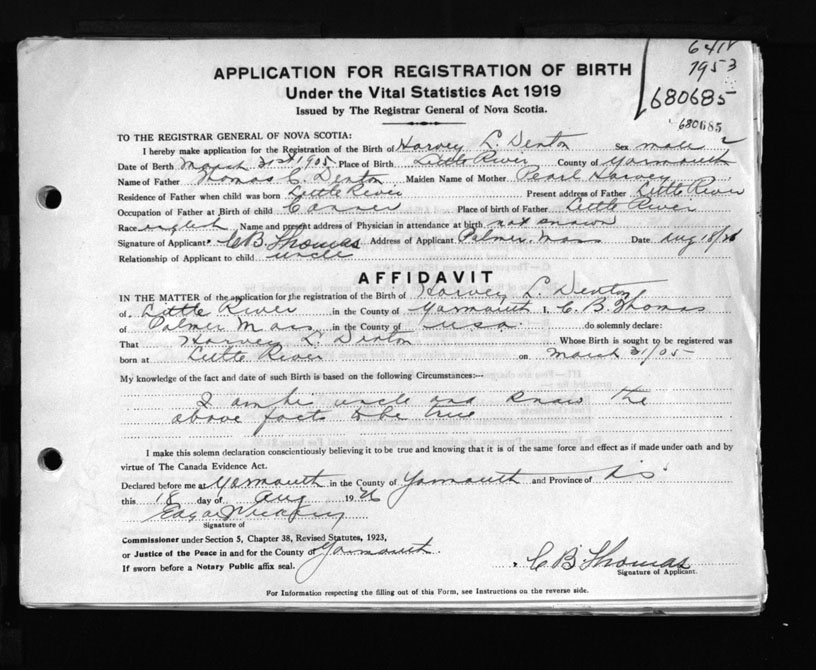 6418
7953
680685
680685
APPLICATION FOR REGISTRATION OF BIRTH
Under the Vital Statistics Act 1919
Issued by The Registrar General of Nova Scotia.
TO THE REGISTRAR GENERAL OF NOVA SCOTIA:
I hereby make application for the Registration of the Birth of Harvey L. Denton Sex male
Date of Berth March 31st, 1905 Place of Birth Little River County of Yarmouth
Name of Father Thomas C. Denton Maiden Name of Mother Pearl Harvey
Residence of Father when child was born Little River Present address of Father Little River
Occupation of Father at Birth of child Place of birth of Father Little River
Race english Name and present address of Physician in attendance at birth not known
Signature of Applicant C B. Thomas Address of Applicant Palmer, Mass Date Aug 18/26
Relationship of Applicant to child uncle
AFFIDAVIT
IN THE MATTER of the application for the registration of the Birth of Harvey L. Denton
of Little River in the County of Yarmouth I, C. B. Thomas
of Palmer Mass in the County of U.S.A. do solemnly declare:
That Harvey L. Denton Whose Birth is sought to be registered was
born at Little River on March 31/05
My knowledge of the fact and date of such Birth is based on the following Circumstances:--
I am his uncle and know the
above facts to be true
I make this solemn declaration conscientiously believing it to be true and knowing that is of the same force and effect as if made under oath and by
virtue of The Canada Evidence Act.
Declared before me at Yarmouth in the County of Yarmouth and Province of N.S.
this 18 day of Aug 1926
Edgar
Signature of
Commissioner under Section 5, Chapter 38, Revised Statutes, 1923,
or Justice of the Peace in and for the County of Yarmouth.
If sworn before a Notary Public affix seal.
C B Thomas
Signature of Applicant.
For Information respecting the filling out of this Form, see Instructions on the reverse side.